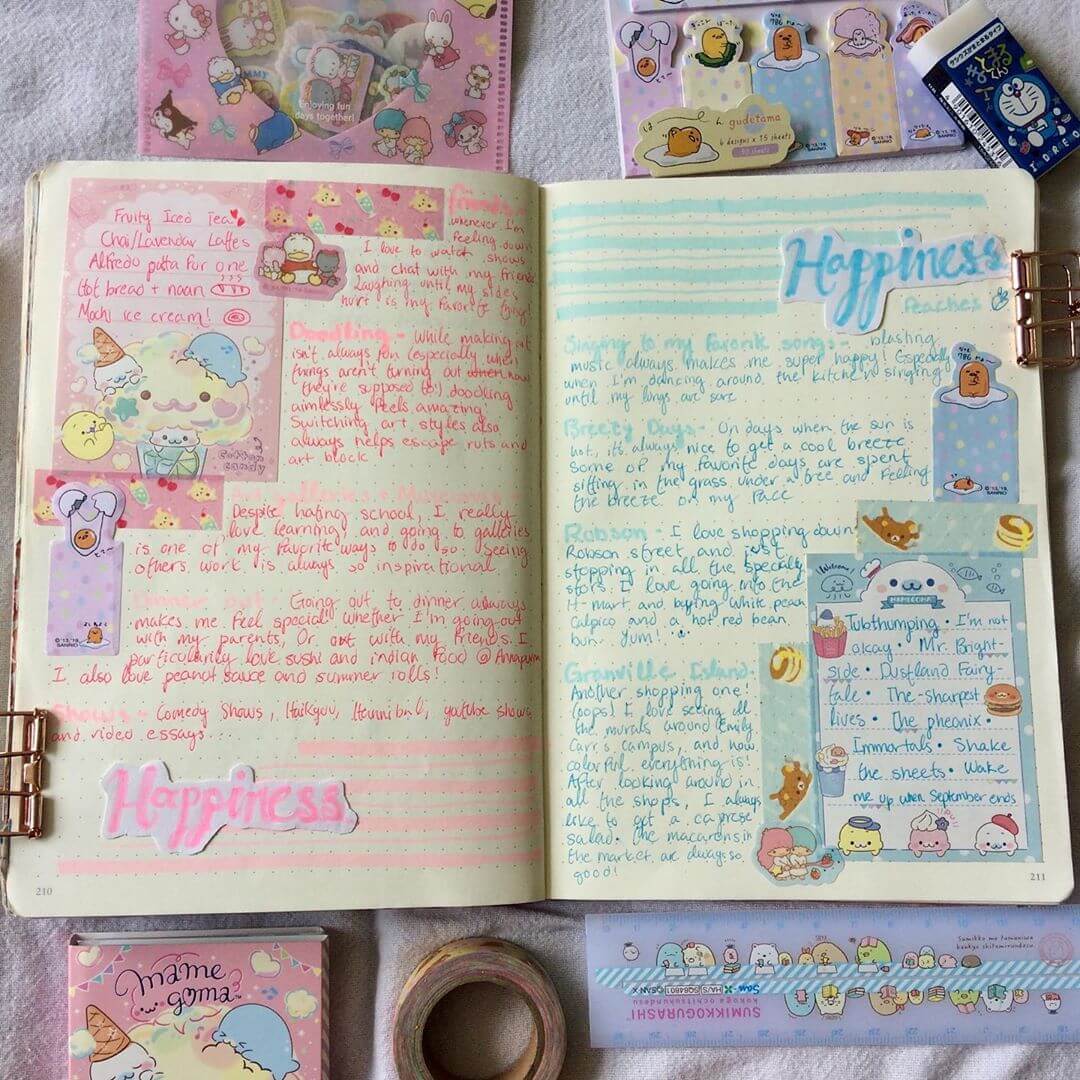 Enjoying fun
days together!
gudetama
6 designs x 15 sheets
90 sheets
DORAEMON
Fruity Iced Tea
Chai/Lavendar Lattes
Alfredo pasta for one
Hot bread + naan
Mochi ice cream!
Cotton
candy
friends -
whenever I'm
feeling down
I love to watch shows
and chat with my friends
Laughing until my sides
hurt is my favorite thing!
Doodling - While making art
isn't always fun (especially when
things aren't turning out when how
they're supposed to) doodling
aimlessly feels amazing
Switching art styles also
always helps escape ruts and
art block
Art galleries + Museums
Despite hating school, I really
love learning, and going to galleries
is one of my favorite ways to do so. Seeing
others work is always so inspirational
Dinner out - Going out to dinner always
makes me feel special whether I'm going out
with my parents, Or out with my friends. I
particularly love sushi and indian food @ Annapurna
I also love peanut sauce and summer rolls!
Shows - Comedy Shows, Haikyuu, Hannibal, youtube shows
and video essays...
Happiness
210
Happiness
Peaches
Singing to my favorite songs - blasting
music always makes me super happy! Especially
when I'm dancing around the kitchen singing
until my lungs are sore
Breezy Days - On days when the sun is
hot, it's always nice to get a cool breeze
Some of my favorite days are spent
sitting in the grass under a tree and feeling
the breeze on my face
Robson - I love shopping down
Robson street and just
stopping in all the specialty
stors. I love going into the
H-mart and buying white peach
Calpico and a hot red bean
bun. Yum!
Granville Island -
Another shopping one!
(oops) I love seeing all
the murals around Emily
Carr's campus, and how
colorful everything is!
After looking around in
all the shops, I always
like to get a caprese
salad. The macarons in
the market are always so
good!
Welcome!
MAMEGOMA
Tubthumping • I'm not
okay • Mr. Bright
side • Dustland Fairy-
tale • The sharpest
lives • The pheonix •
Immortals • Shake
the sheets • Wake
me up when September ends
211
mame
goma
Sumikko no tamaniwa
kenkyu shitemirundesu
SUMIKKOGURASHI
kokoga ochitsukundesu
SAN-X